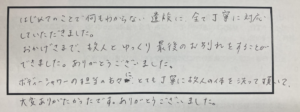 はじめてのことで何もわからない遺族に全て丁寧に対応
していただきました。
おかげさまで、故人とゆっくり最後のお別れをすることが
できました。ありがとうございました。
ボディーシャワーの担当の方々に とても丁寧に故人の体を洗って頂いて、
大変ありがたかったです。ありがとうございました。